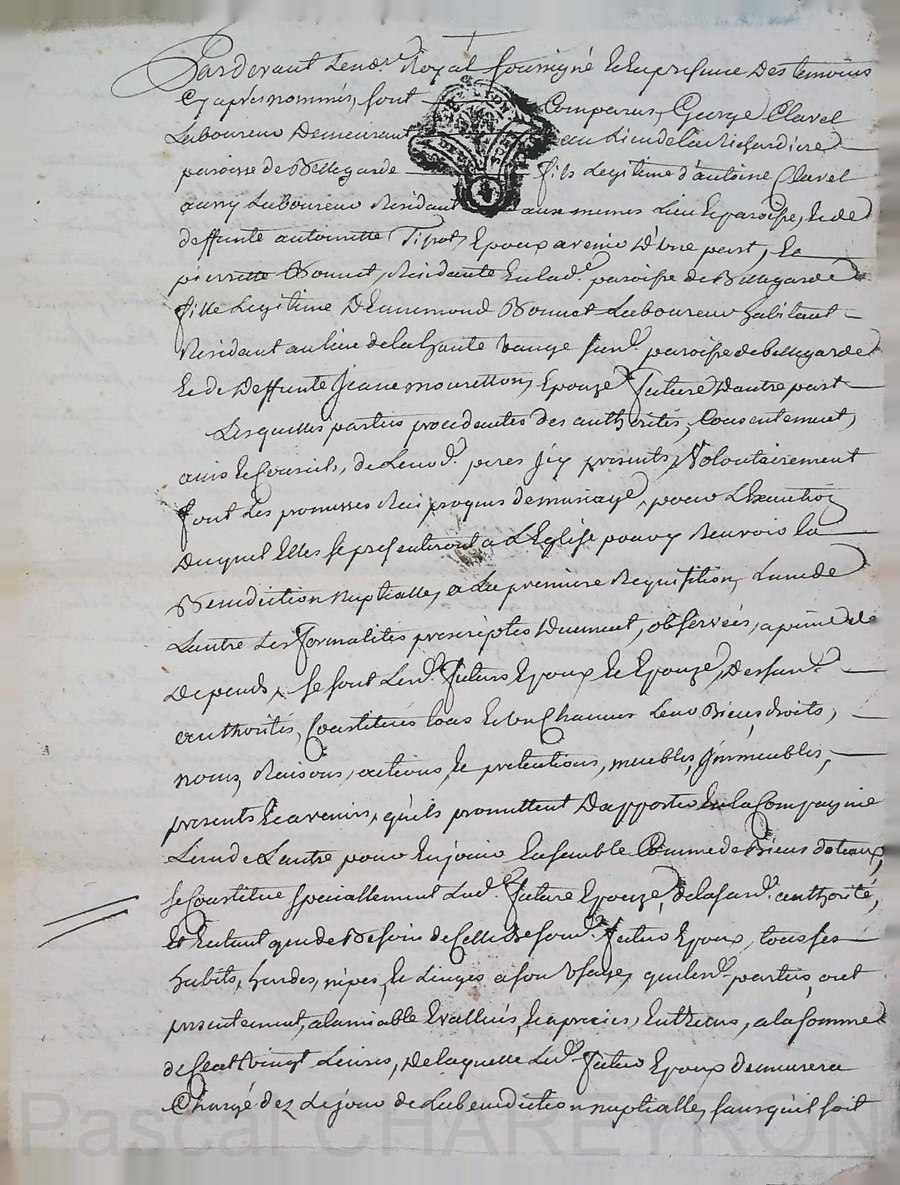 Pardevant Le no.re Royal Soussigné & En presence Des temoins
Cy apres nommés, sont Comparus, George Clavel
Laboureur Demeurant au Lieu de La Richardiere
paroisse de Bellegarde fils Legitime d'antoine Clavel
aussy Laboureur Residant aux memes Lieu & paroisse, & de
deffunte antoinette Tissot, Epoux avenir D'une part, Et
pierrette Bonnet, Residante En lad.e paroisse de Bellegarde
fille Legitime D'Ennemond Bonnet Laboureur habitant
Residant au lieu de la haute Vange Susd.e paroisse de bellegarde
Et de Deffunte Jeane mouretton, Epouze future D'autre part
Lesquelles parties procedantes des authorités, Consentement,
avis & Conseils, de Leursd. peres Jcy presents, Volontairement
font Les promesses Reciproques de mariage, pour L'Execution
Duquel Elles se presenteront a L'Eglise pour y Recevoir la
Benediction nuptialle, a La premiere Requisition, L'un de
L'autre Les formalités prescriptes Duement, observées, a peine de
Depends, Se sont Lesd. futurs Epoux & Epouze, Desd.
authorités, Constitués tous & un Chacuns Leur Biens, droits,
noms, Raisons, actions, & pretentions, meubles, Jmmeubles,
presents & avenir, qu'ils promettent D'apporter En la Compagnie
L'un de L'autre pour En jouir Ensemble Comme de Biens dotaux,
se Constitue specialement Lad. future Epouze, de la susd. authorité,
Et En tant que de Besoin de Celle De sond. futur Epoux, tous ses
habits, hardes, nipes, & Linges a son Usage, que lesd. parties, ont
presentement, a lamiable Evallués, & apreciés, Entr'eux, a la somme
de Cent Vingt Livres, De laquelle Led. futur Epoux demeurera
Chargé dez Le jour de La benediction nuptialle, sans qu'il soit
Pascal CHAREYRON